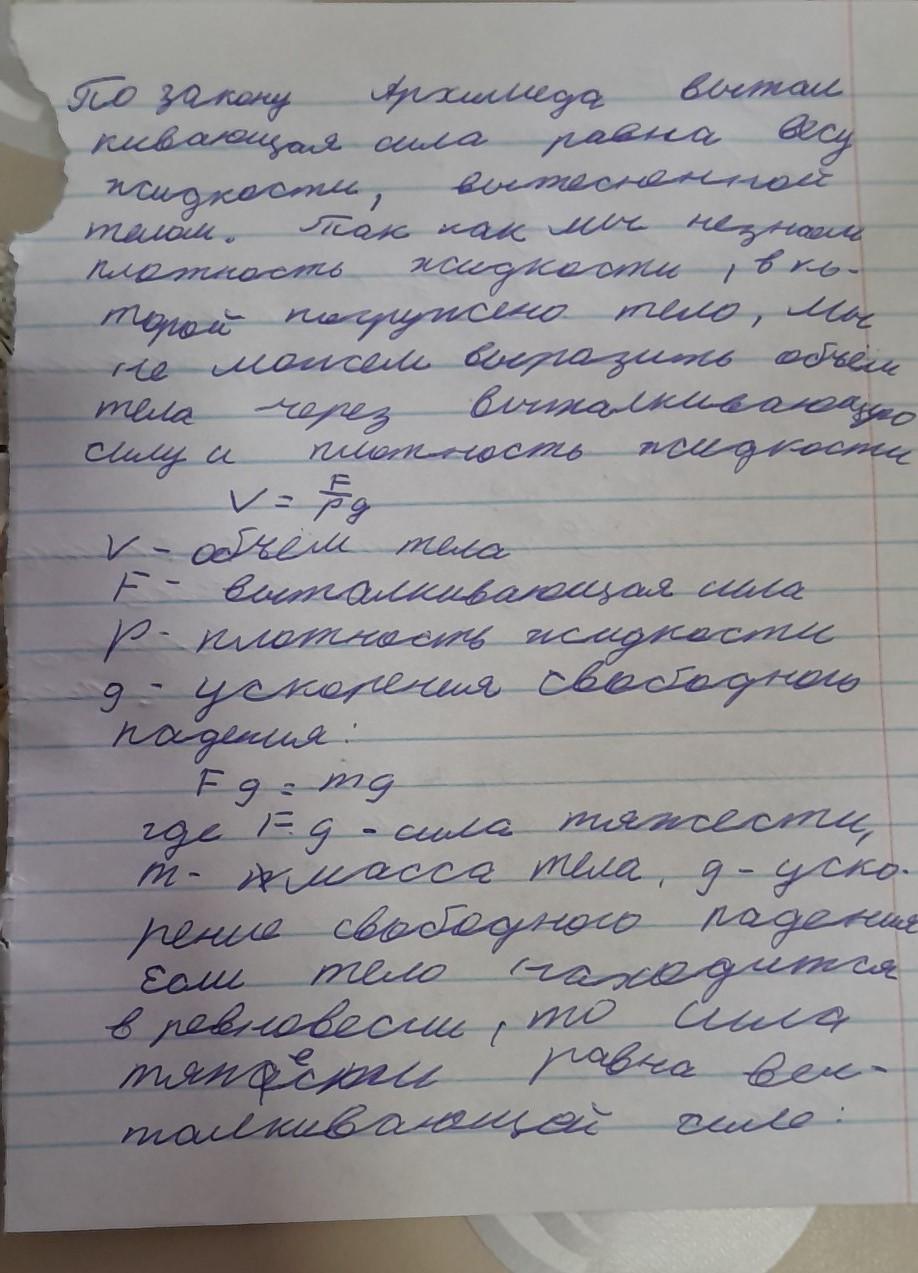 По закону Архимеда вытал
кивающая сила равна весу
жидкости, вытесненной
телом. Так как мы незнаем
плотность жидкости, в ко-
торой погружено тело, мы
не можем выразить объём
тела через выталкивающую
силу и плотность жидкости
V = F/ρg
V - объём тела
F - выталкивающая сила
ρ - плотность жидкости
g - ускорения свободного
падения:
Fg = mg
где Fg - сила тяжести,
m - масса тела, g - уско-
рение свободного падения
Если тело находится
в равновесии, то сила
тяжести равна выт-
талкивающей силе: